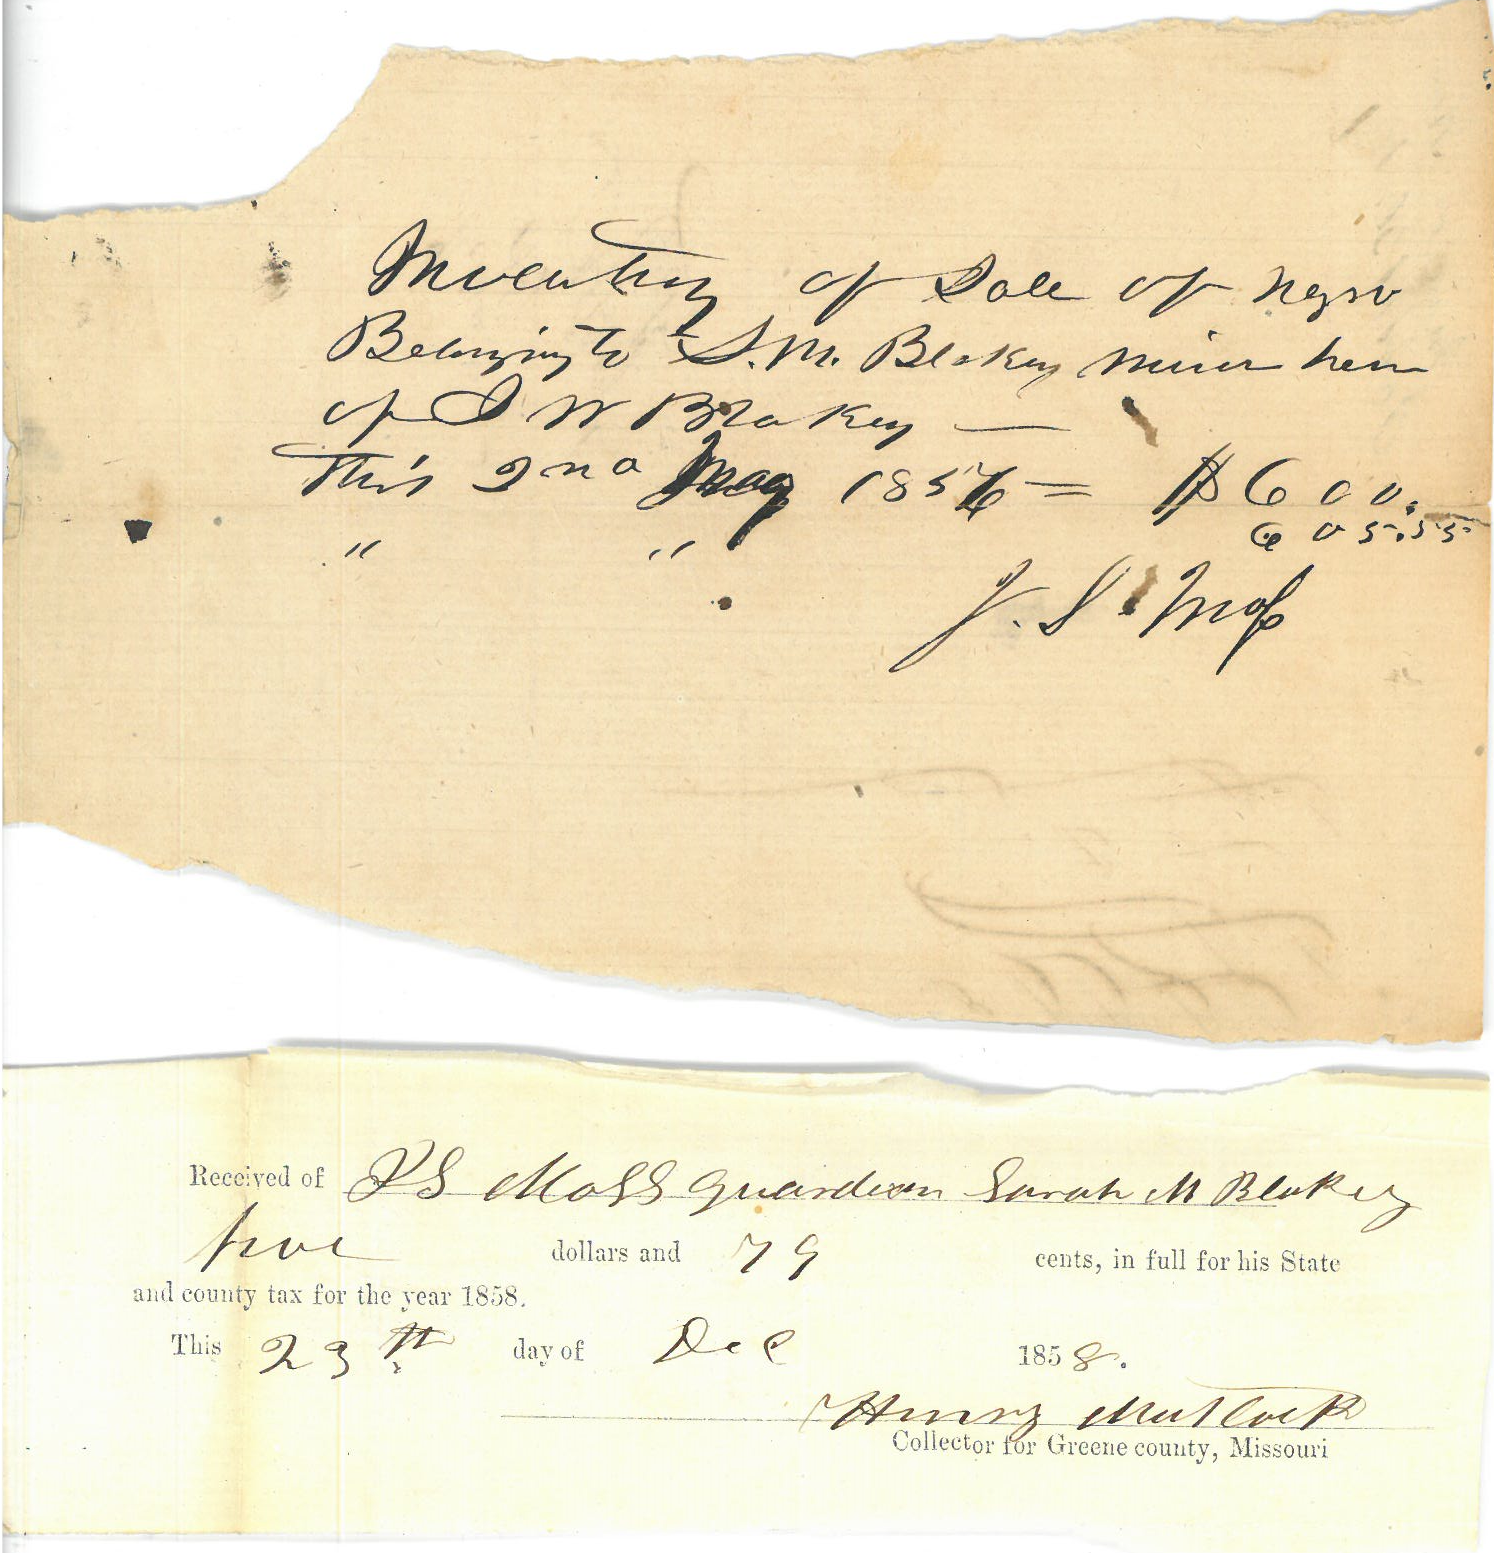 Inventory of Sale of negro
Belonging to S. M. Blakey minor heir
of S W Blakey —
This 2nd May 1856 = $600.
" " 605.55
J. S. Moss
Received of J S Moss guardian Sarah M Blakey
five dollars and 79 cents, in full for his State
and county tax for the year 1858.
This 23th day of Dec 1858.
Henry Matlock
Collector for Greene county, Missouri